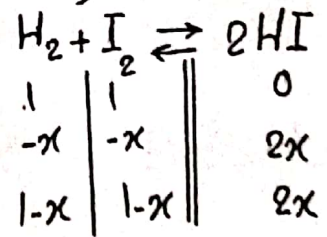 H₂ + I₂ ⇌ 2HI
1 | 1 || 0
-x | -x || 2x
1-x | 1-x || 2x